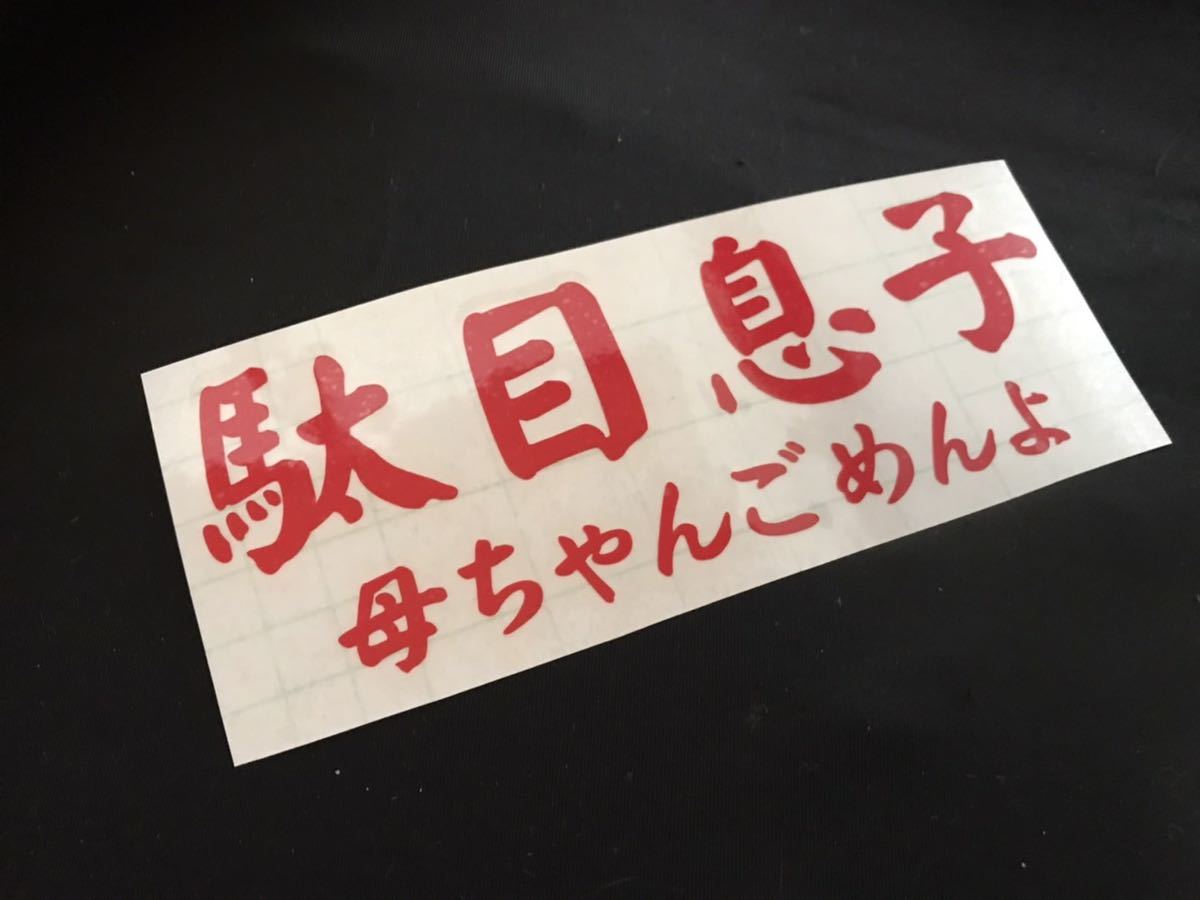 駄目息子
母ちゃんごめんよ